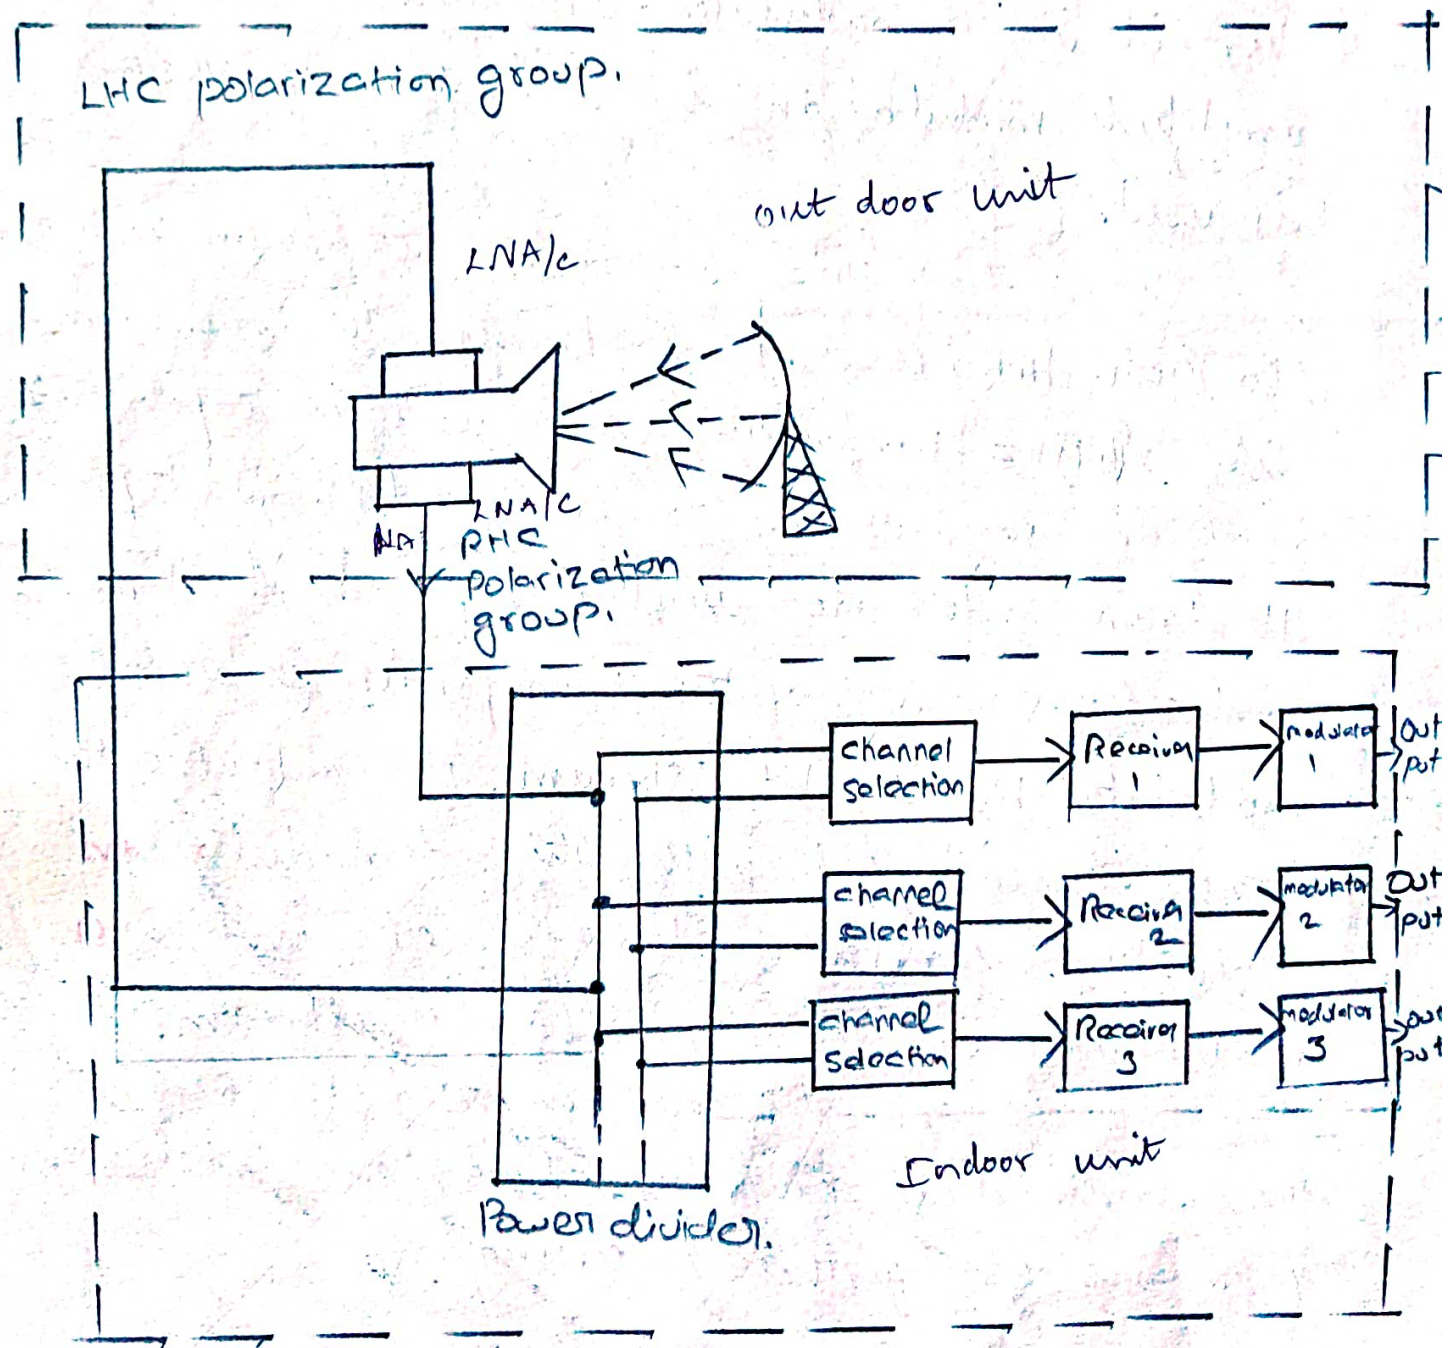 LHC polarization group.
out door unit
LNA/c
LNA/C
NA
RHC
polarization
group.
channel
selection
Receiver
1
modulator
1
Out
put
channel
selection
Receiver
2
modulator
2
Out
put
channel
selection
Receiver
3
modulator
3
out
put
Indoor unit
Power divider.